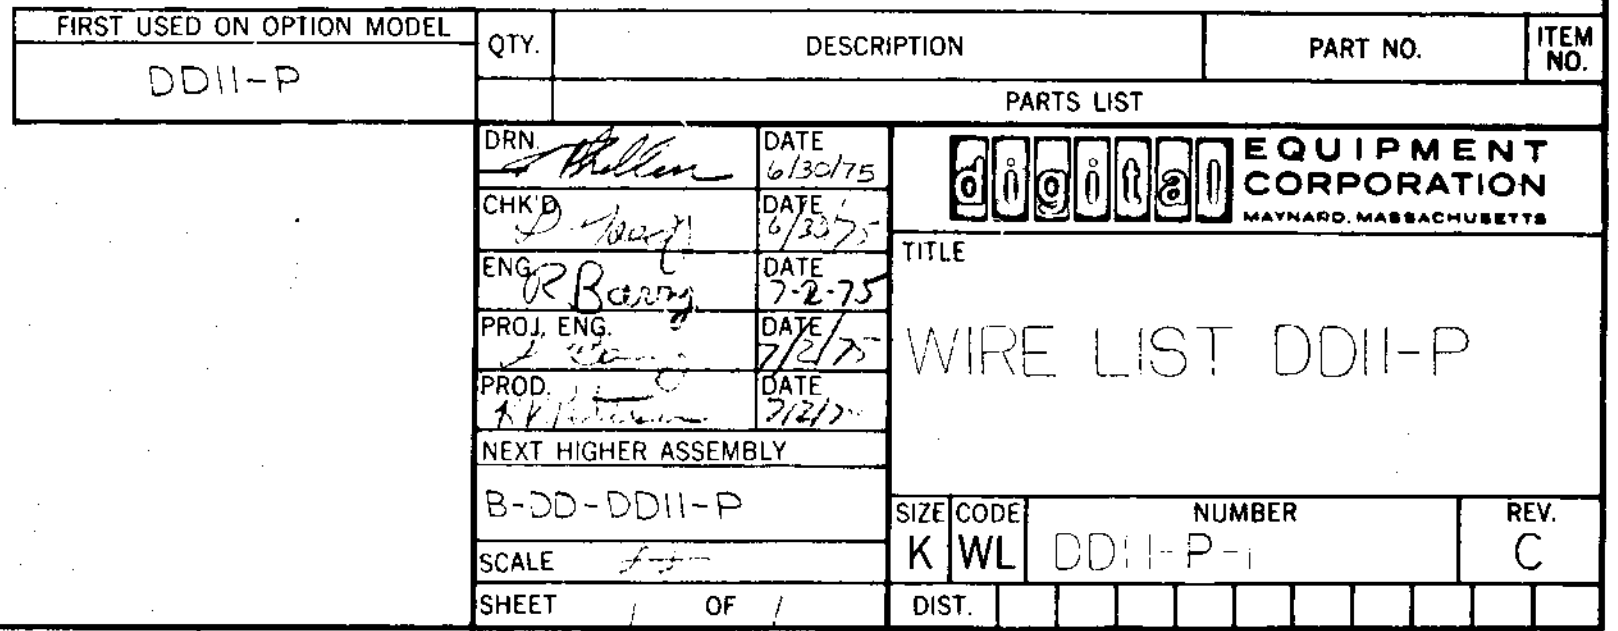 FIRST USED ON OPTION MODEL
DD11-P
QTY. DESCRIPTION PART NO. ITEM NO.
PARTS LIST
DRN. DATE 6/30/75
CHK'D DATE 6/30/75
ENG. R Barry DATE 7-2-75
PROJ. ENG. DATE 7/2/75
PROD. DATE 7/2/7
NEXT HIGHER ASSEMBLY
B-DD-DD11-P
SCALE
SHEET 1 OF 1
digital EQUIPMENT
CORPORATION
MAYNARD, MASSACHUSETTS
TITLE
WIRE LIST DD11-P
SIZE CODE NUMBER REV.
K WL DD11-P-1 C
DIST.